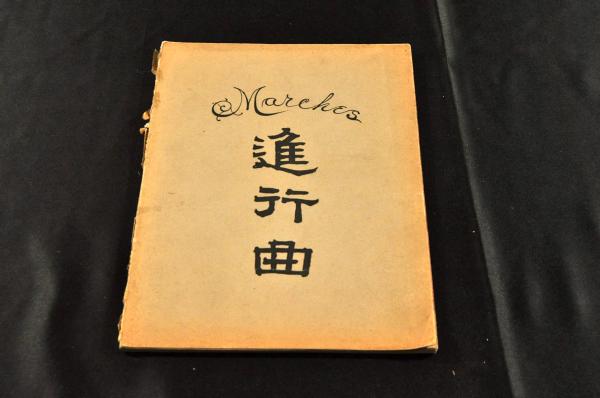 Marches
進行曲